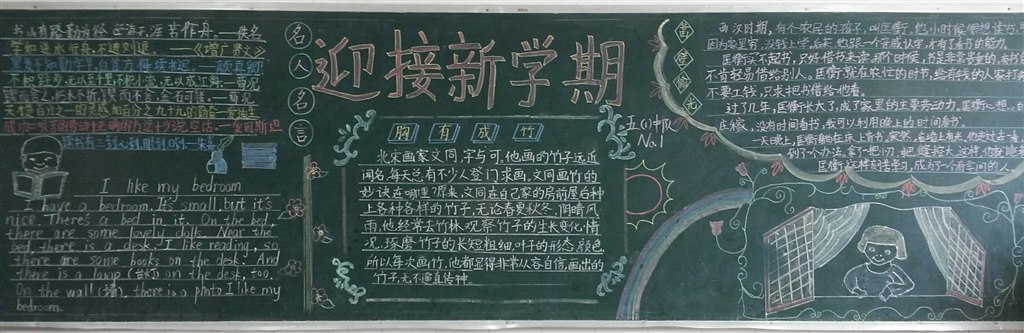 书山有路勤为径 学海无涯苦作舟。——佚名
学如逆水行舟,不进则退。——《增广贤文》
黑发不知勤学早,白首方悔读书迟。——颜真卿
不积跬步无以至千里,不积小流,无以成江海——荀况
锲而舍之,朽木不折;锲而不舍,金石可镂。——荀况
天才是百分之一的灵感加百分之九十九的
读书有三到:心到,眼到,口到——朱熹
I like my bedroom
I have a bedroom. It's small, but it's
nice. There's a bed in it. On the bed,
there are some lovely dolls. Near the
bed, there is a desk. I like reading, so
there are some books on the desk. And
there is a lamp (台灯) on the desk, too.
On the wall (墙), there is a photo. I like my
bedroom.
名人名言
迎接新学期
胸有成竹
北宋画家文同,字与可。他画的竹子远近
闻名,每天总有不少人登门求画。文同画竹的
妙诀在哪里?原来,文同在自己家的房前屋后种
上各种各样的竹子,无论春夏秋冬,阴晴风
雨,他经常去竹林观察竹子的生长变化情
况,琢磨竹子的长短粗细,叶子的形态、颜色
所以每次画竹,他都显得非常从容自信,画出的
竹子,无不逼真传神。
五(1)中队
No.1
凿壁偷光
西汉时期,有个农民的孩子,叫匡衡。他小时候很想读书,
因为家里穷,没钱上学。后来,他跟一个亲戚认字,才有了看书的能力。
匡衡买不起书,只好借书来读。那个时候,书是非常贵重的,有书的
不肯轻易借给别人。匡衡就在农忙的时节,给有钱的人家打
不要工钱,只求把书借给他看。
过了几年,匡衡长大了,成了家里的主要劳动力。匡衡心想:
,没有时间看书,我可以利用晚上的时间看书。
一天晚上,匡衡躺在床上背书,突然,